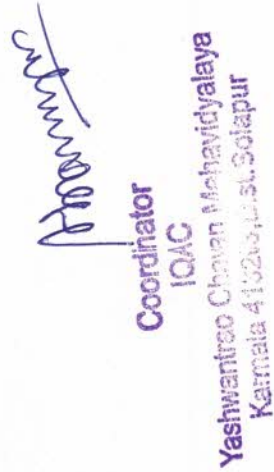 Coordinator
IQAC
Yashwantrao Chavan Mahavidyalaya
Karmala 413203, Dist. Solapur